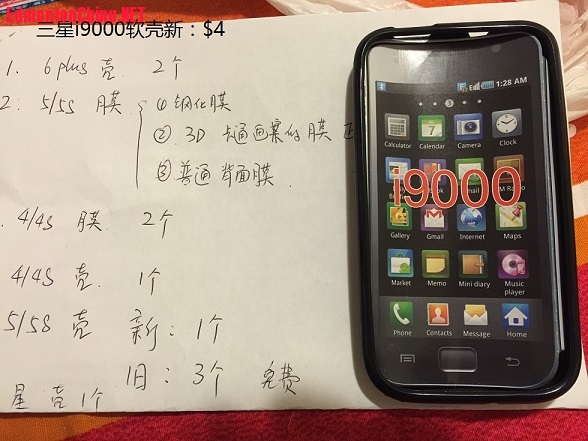 三星i9000软壳新：$4
1. 6plus 壳 2个
2. 5/5s 膜
① 钢化膜
② 3D 卡通画案的膜 正
③ 普通背面膜
4/4s 膜 2个
4/4s 壳 1个
5/5s 壳 新：1个
旧：3个 免费
星 壳 1个
1:28 AM
Calculator Calendar Camera Clock
FM Radio
i9000
Gallery Gmail Internet Maps
Market Memo Mini diary Music player
Phone Contacts Message Home